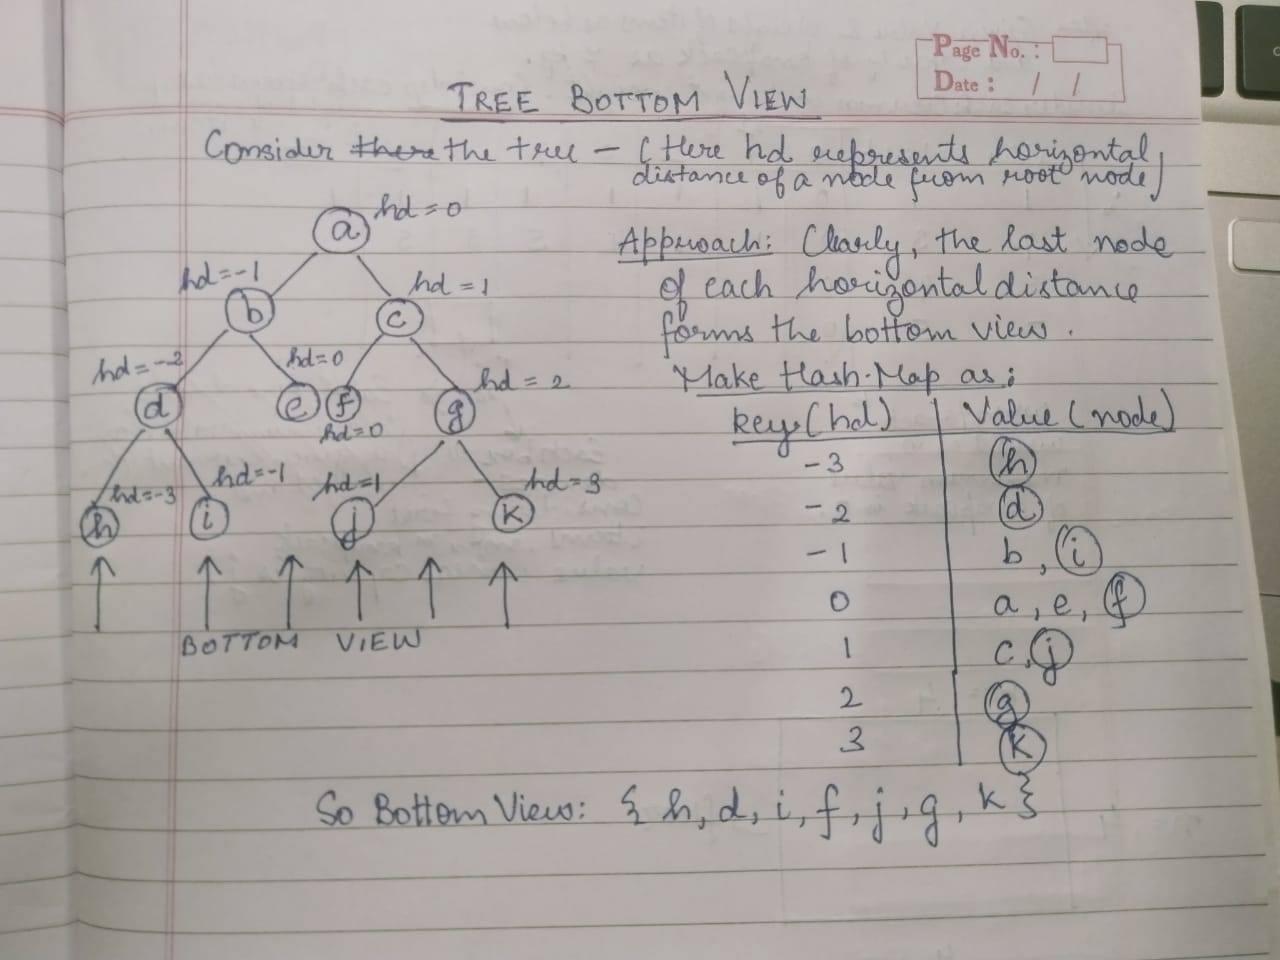 Page No. :
Date : / /
TREE BOTTOM VIEW
Consider there the tree - (Here hd represents horizontal
distance of a node from root node)
hd = 0
a
hd = -1
hd = 1
b
c
hd = -2
hd = 0
hd = 2
d
e
f
g
hd = 0
hd = -3
hd = -1
hd = 1
hd = 3
h
i
j
k
BOTTOM VIEW
Approach: Clearly, the last node
of each horizontal distance
forms the bottom view.
Make Hash-Map as:
key (hd) Value (node)
-3 h
-2 d
-1 b, i
0 a, e, f
1 c, j
2 g
3 k
So Bottom View: { h, d, i, f, j, g, k }